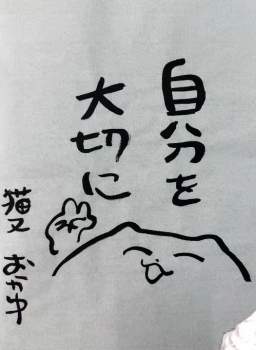 自分を
大切に
猫又 おかゆ